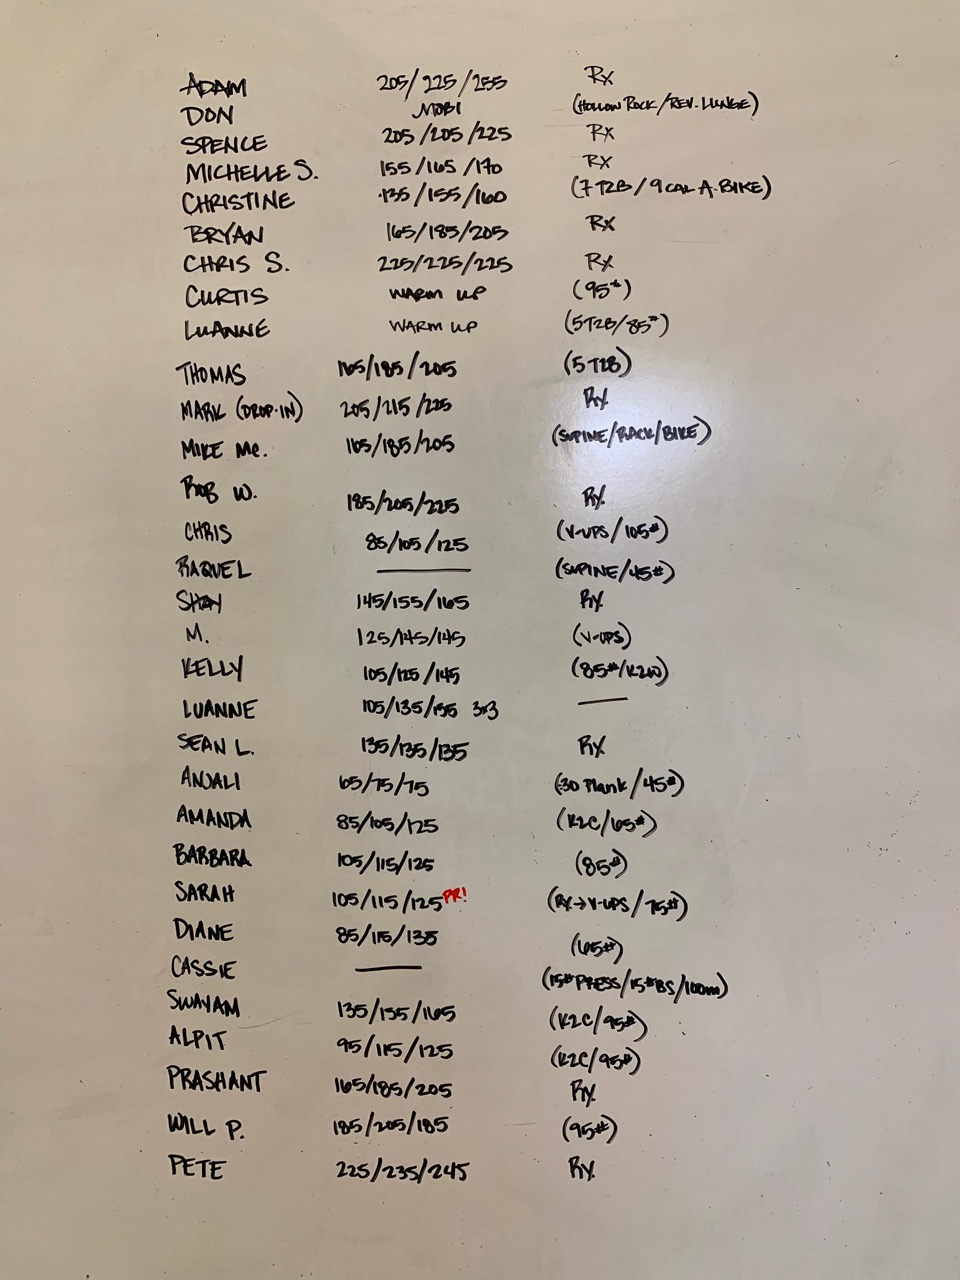 ADAM 205/225/255 Rx
DON MOBI (HOLLOW ROCK/REV. LUNGE)
SPENCE 205/205/225 Rx
MICHELLE S. 155/165/170 Rx
CHRISTINE 135/155/160 (7 T2B/9 CAL A.BIKE)
BRYAN 165/185/205 Rx
CHRIS S. 225/225/225 Rx
CURTIS WARM UP (95#)
LUANNE WARM UP (5T2B/85#)
THOMAS 165/185/205 (5 T2B)
MARK (DROP-IN) 205/215/225 Rx
MIKE Mc. 165/185/205 (SUPINE/RACK/BIKE)
ROB W. 185/205/225 Rx
CHRIS 85/105/125 (V-UPS/105#)
RAQUEL — (SUPINE/45#)
SHAY 145/155/165 Rx
M. 125/145/145 (V-UPS)
KELLY 105/125/145 (85#/K2W)
LUANNE 105/135/155 3x3 —
SEAN L. 135/135/135 Rx
ANJALI 65/75/75 (:30 Plank/45#)
AMANDA 85/105/125 (K2C/65#)
BARBARA 105/115/125 (85#)
SARAH 105/115/125 PR! (Rx→V-UPS/75#)
DIANE 85/115/135 (65#)
CASSIE — (15# PRESS/15# BS/100m)
SWAYAM 135/155/165 (K2C/95#)
ALPIT 95/115/125 (K2C/95#)
PRASHANT 165/185/205 Rx
WILL P. 185/205/185 (95#)
PETE 225/235/245 Rx